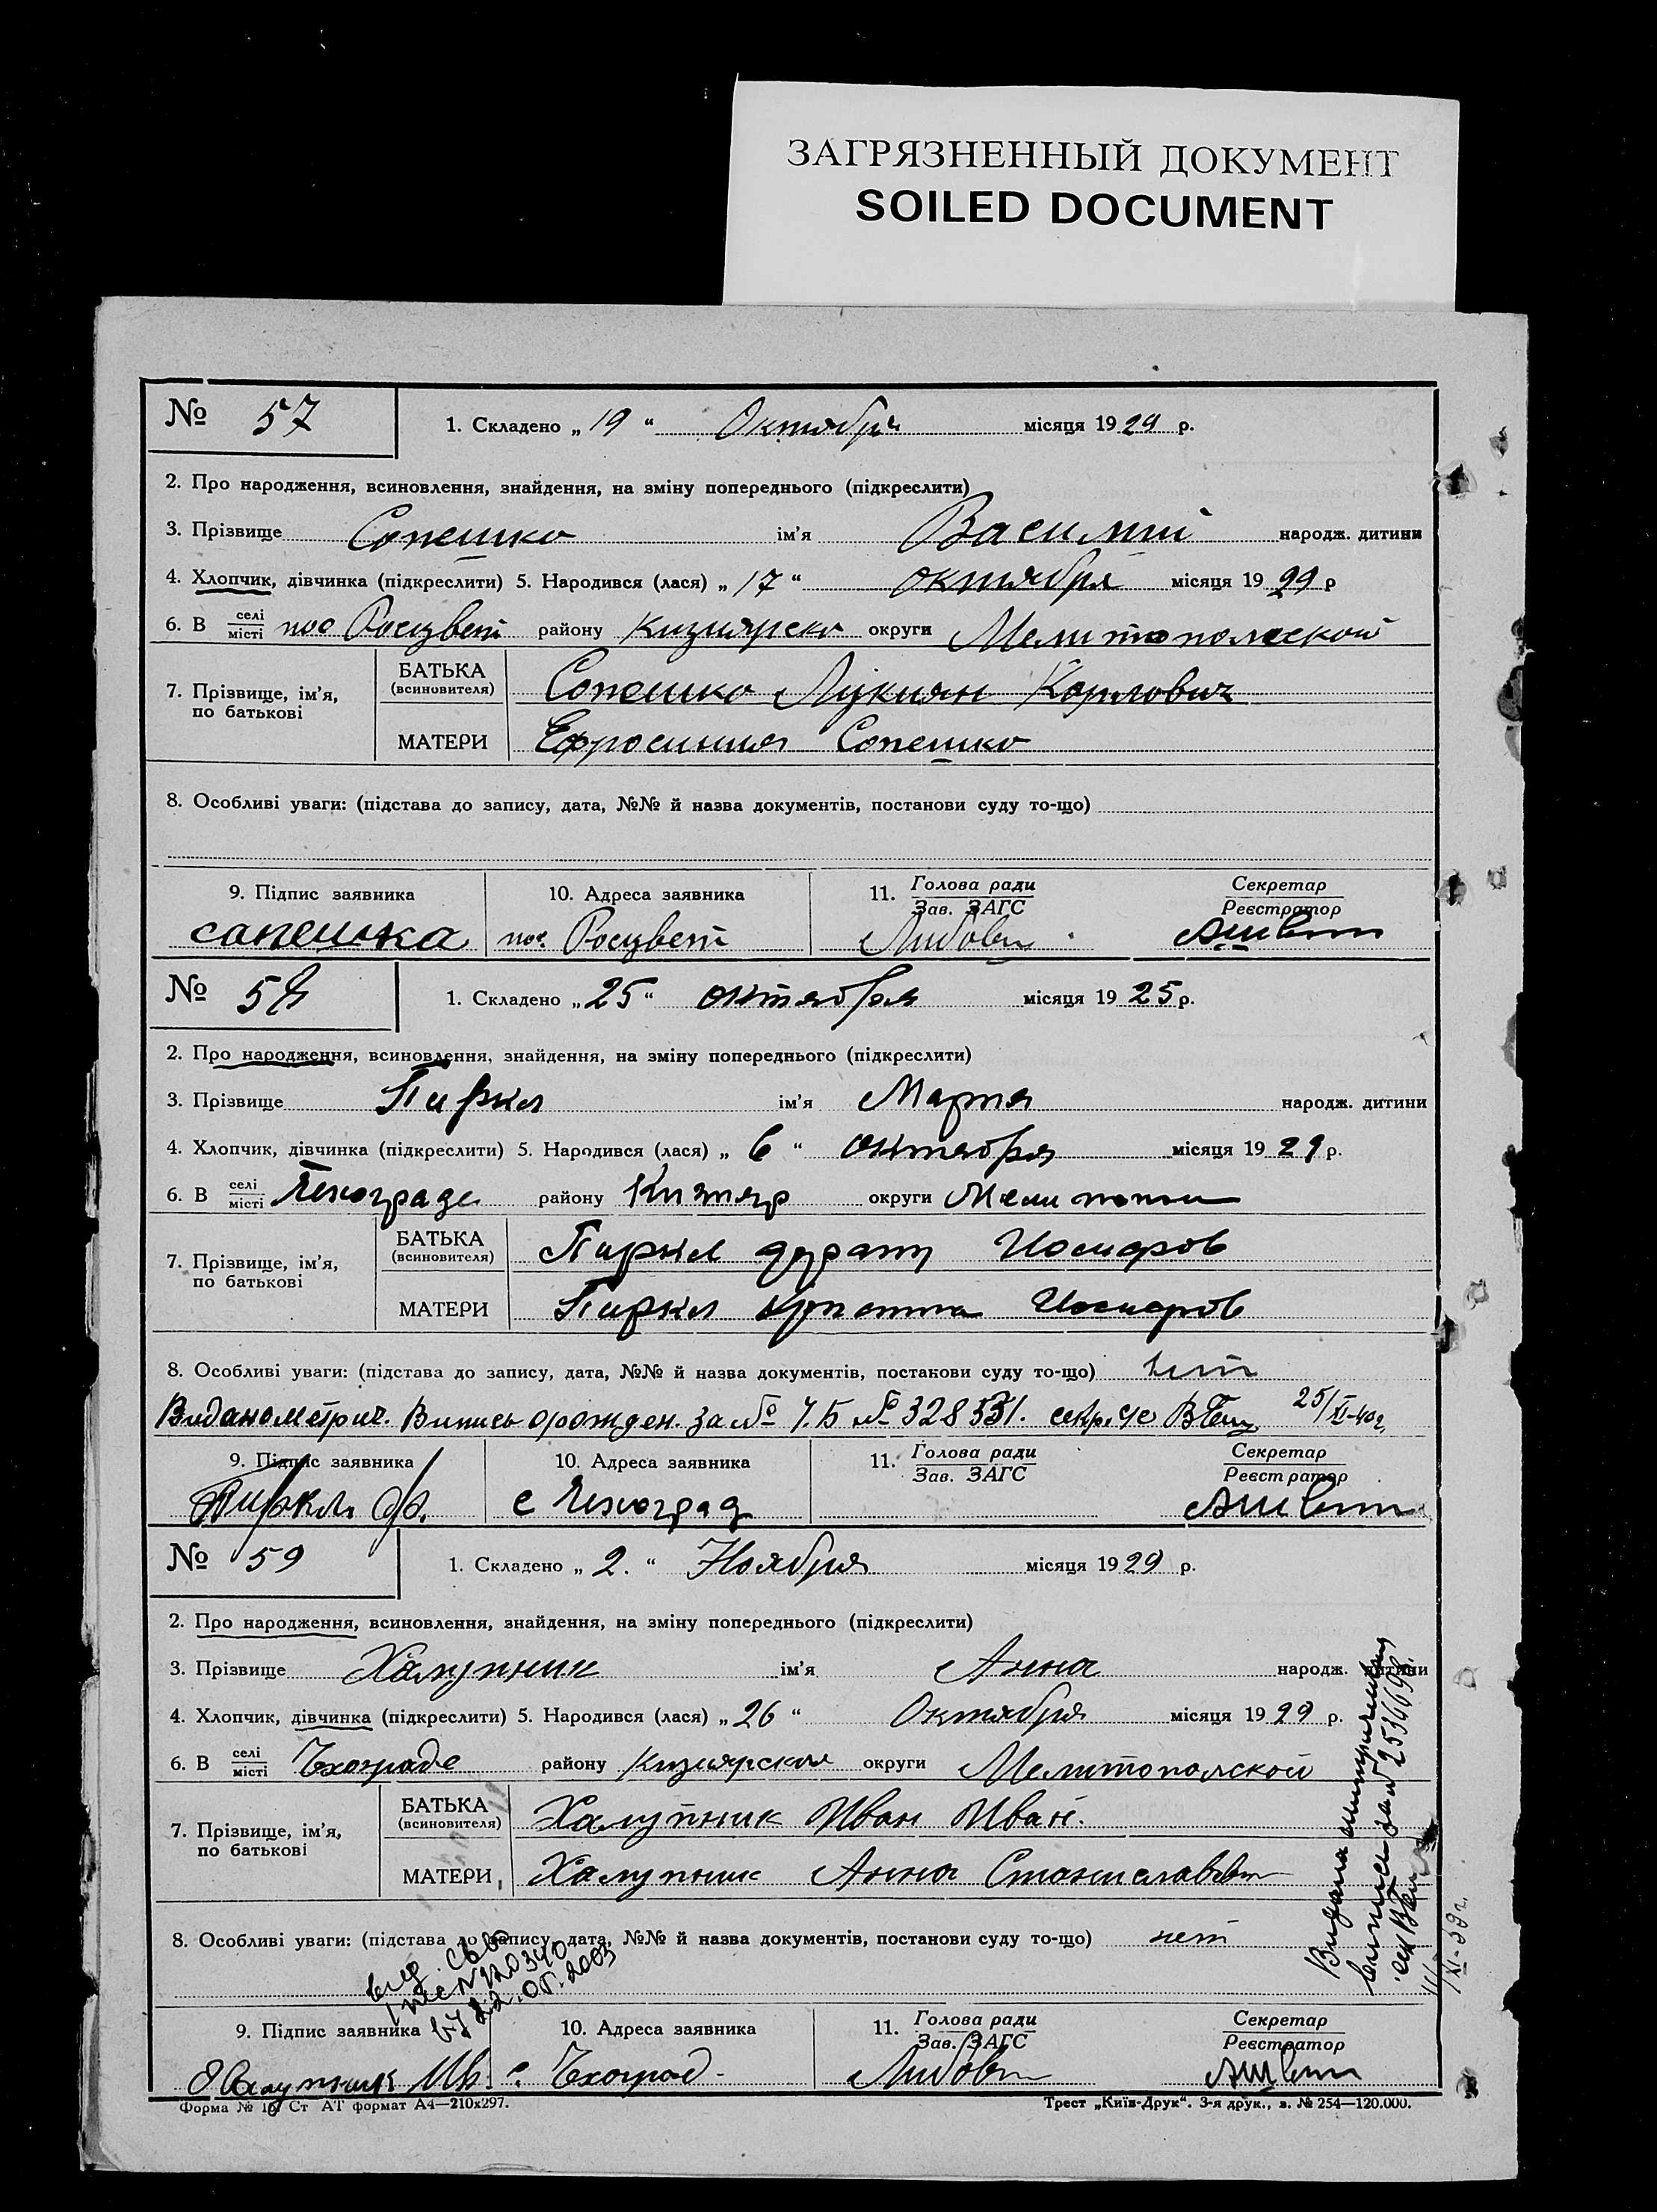 ЗАГРЯЗНЕННЫЙ ДОКУМЕНТ
SOILED DOCUMENT
№ 57
1. Складено „ 19 “ Октября місяця 1929 р.
2. Про народження, всиновлення, знайдення, на зміну попереднього (підкреслити)
3. Прізвище Сопешко ім’я Василий народж. дитини
4. Хлопчик, дівчинка (підкреслити) 5. Народився (лася) „ 17 “ октября місяця 1929 р
6. В селі місті пос Росцвет району Кизиярско округи Мелитопольской
7. Прізвище, ім’я, по батькові
БАТЬКА (всиновителя) Сопешко Лукиян Карлович
МАТЕРИ Ефросиния Сопешко
8. Особливі уваги: (підстава до запису, дата, №№ й назва документів, постанови суду то-що)
9. Підпис заявника 10. Адреса заявника 11. Голова ради Зав. ЗАГС Секретар Реєстратор
сапешка пос. Росцвет
№ 58
1. Складено „ 25 “ октября місяця 1925 р.
2. Про народження, всиновлення, знайдення, на зміну попереднього (підкреслити)
3. Прізвище Пиркл ім’я Мария народж. дитини
4. Хлопчик, дівчинка (підкреслити) 5. Народився (лася) „ 6 “ октября місяця 1929 р.
6. В селі місті Чехограде району Кизияр округи
7. Прізвище, ім’я, по батькові
БАТЬКА (всиновителя) Пиркл Иосифов
МАТЕРИ Пиркл Иосифов
8. Особливі уваги: (підстава до запису, дата, №№ й назва документів, постакови суду то-що) нет
Видано метрич. Випись орожден. за № № 328531. 25/XI-40г.
9. Підпис заявника 10. Адреса заявника 11. Голова ради Зав. ЗАГС Секретар Реєстратор
Пиркл с Чехоград
№ 59
1. Складено „ 2. “ Ноября місяця 1929 р.
2. Про народження, всиновлення, знайдення, на зміну попереднього (підкреслити)
3. Прізвище Халупник ім’я Анна народж. дитини
4. Хлопчик, дівчинка (підкреслити) 5. Народився (лася) „ 26 “ Октября місяця 1929 р.
6. В селі місті Чхограде району Кизиярскои округи Мелитополской
7. Прізвище, ім’я, по батькові
БАТЬКА (всиновителя) Халупник Иван Иван.
МАТЕРИ Халупник Анна Станиславовн
8. Особливі уваги: (підстава до запису, дата, №№ й назва документів, постанови суду то-що) нет
22.05.2003
Видана
XI-39г.
9. Підпис заявника 10. Адреса заявника 11. Голова ради Зав. ЗАГС Секретар Реєстратор
Халупник Ив. с. Чхоград
Форма № 16 Ст АТ формат А4—210x297. Трест „Київ-Друк“. 3-я друк., з. № 254—120.000.